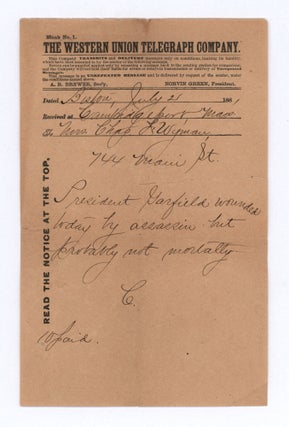 Blank No. 1.
THE WESTERN UNION TELEGRAPH COMPANY.
This Company TRANSMITS and DELIVERS messages only on conditions limiting its liability, which have been assented to by the sender of the following message.
Errors can be guarded against only by repeating a message back to the sending station for comparison, and the Company will not hold itself liable for errors or delays in transmission or delivery of Unrepeated Messages.
This message is an UNREPEATED MESSAGE and is delivered by request of the sender, under the conditions named above.
A. R. BREWER, Sec'y. NORVIN GREEN, President.
Dated, Boston July 2 1881
Received at Cambridgeport Mass
To Mrs Chas F Wyman
744 Main St.
READ THE NOTICE AT THE TOP.
President Garfield wounded
today by assassin but
probably not mortally
C.
10 paid